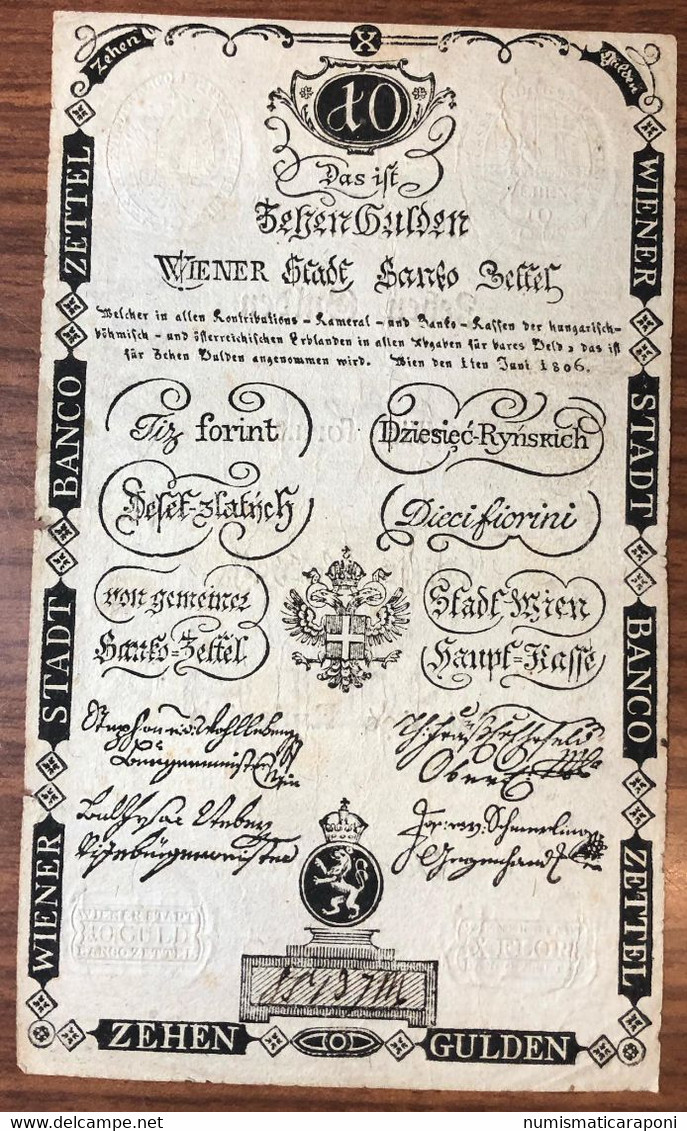 Zehen
X
Gulden
10
Das ist
Zehen Gulden
WIENER Stadt Banko Zettel
Welcher in allen Kontributions - Kameral - und Banko - Kassen der hungarisch-
böhmisch - und österreichischen Erblanden in allen Abgaben für bares Geld, das ist
für Zehen Gulden angenommen wird. Wien den 1ten Juni 1806.
Tiz forint
Dziesięć-Ryńskich
Deset-zlatých
Dieci fiorini
von gemeiner
Stadt Wien
Banko=Zettel
Haupt=Kasse
Bürgermeister
Ober
Vizebürgermeister
Gegenhandl
WIENER STADT BANCO ZETTEL
WIENER STADT BANCO ZETTEL
WIENER STADT
10 GULD
BANCOZETTEL
X FLOR
ZEHEN
10
GULDEN
numismaticaraponi